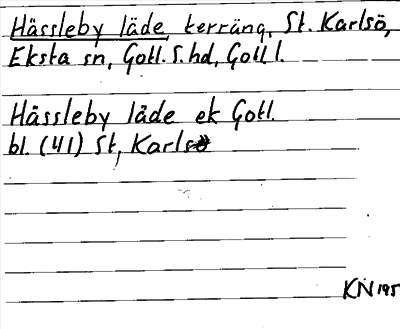 Hässleby läde, terräng, St. Karlsö,
Eksta sn, Gotl. S. hd, Gotl. l.
Hässleby läde ek Gotl.
bl. (41) St, Karlsö
KN 195